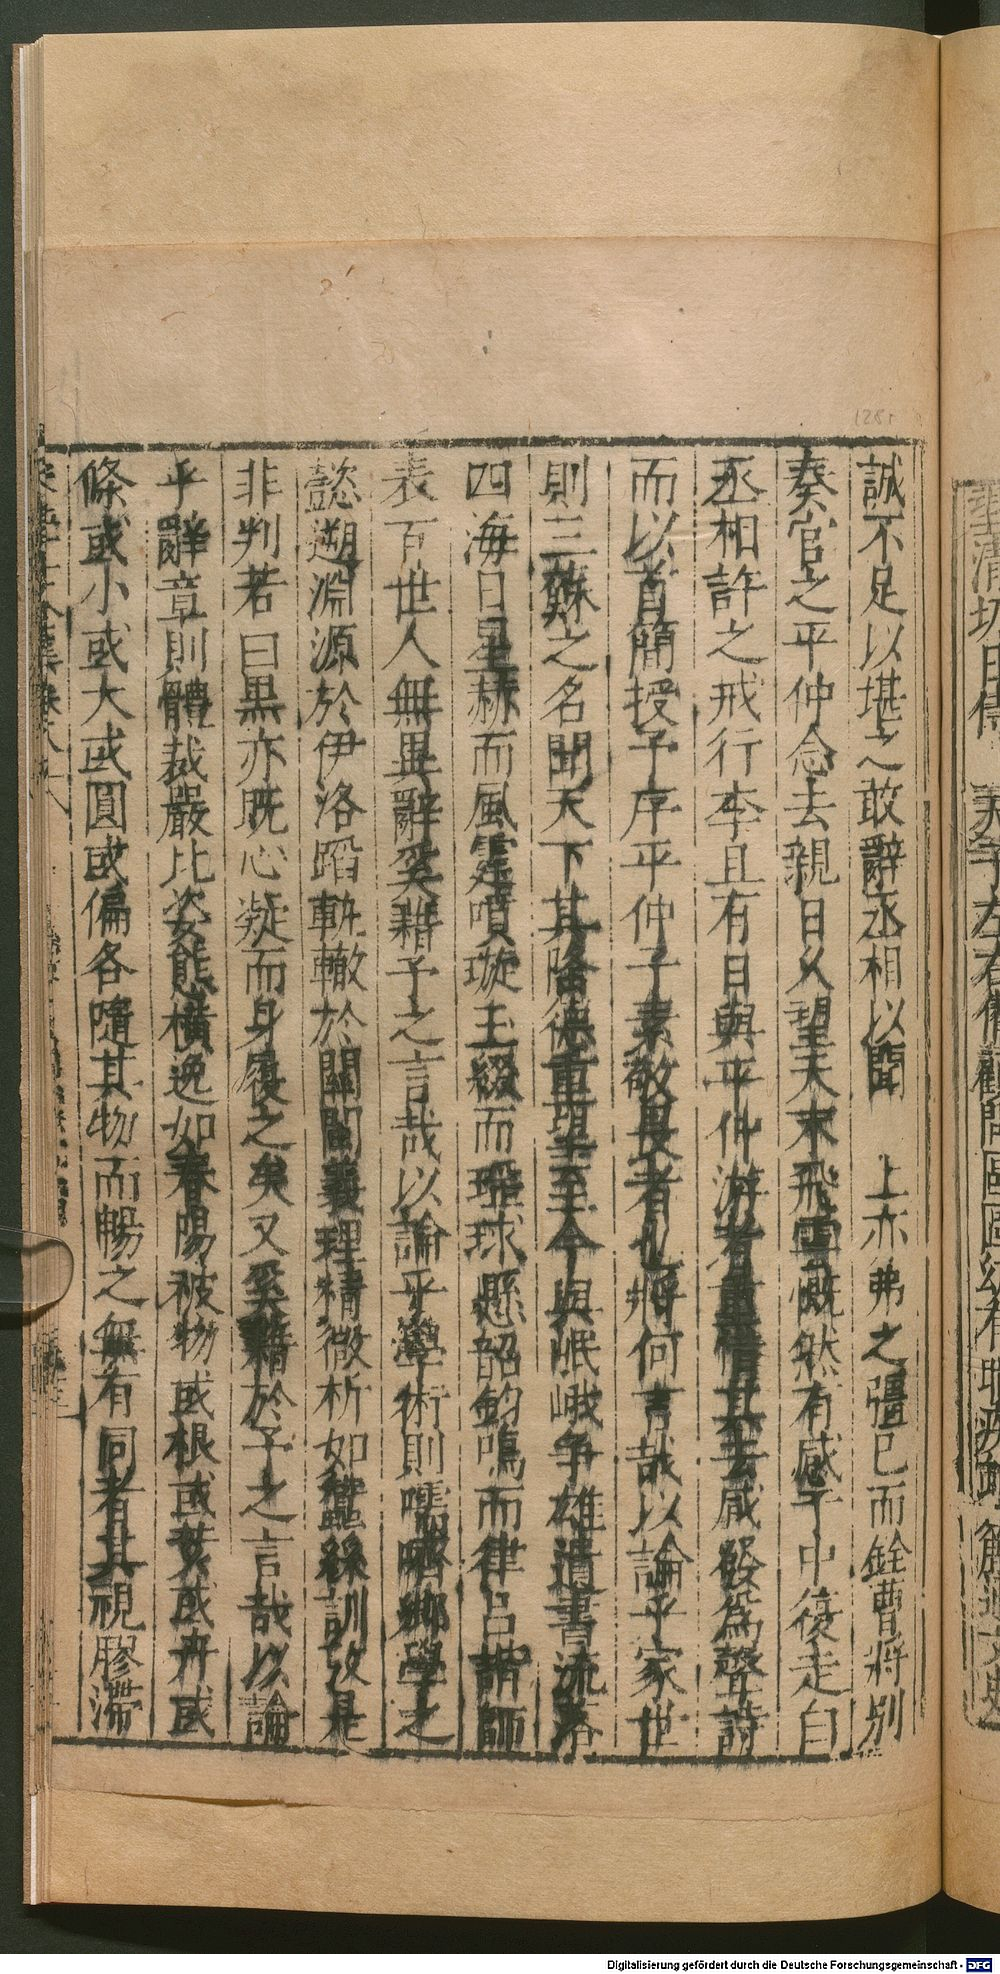 誠不足以堪之敢辭丞相以聞 上亦弗之彊已而銓曹將別
奏官之平仲念去親日久望天末飛雲慨然有感于中復走白
丞相許之戒行李且有日與平仲游者重惜其去咸發為聲詩
而以首簡授予序平仲予素敬畏者也將何言哉以論乎家世
則三蘇之名聞天下其隆德重望至今與岷峨爭雄遺書流落
四海日星赫而風霆噴璇玉綴而琚球懸韶鈞鳴而律呂諧師
表百世人無異辭奚藉予之言哉以論乎學術則嚅嚌鄉學之
懿遡淵源於伊洛蹈軌轍於關閩義理精微析如蠶絲訓故是
非判若白黑亦既心凝而身履之矣又奚藉於予之言哉以論
乎辭章則體裁嚴比姿態橫逸如春陽被物或根或荄或卉或
條或小或大或圓或偏各隨其物而暢之無有同者其視膠滯
1281
Digitalisierung gefördert durch die Deutsche Forschungsgemeinschaft - DFG